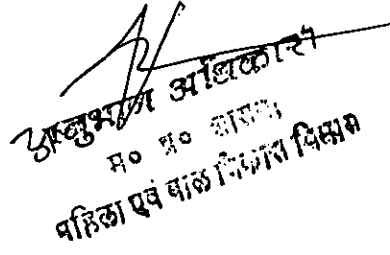 अनुभाग अधिकारी
म० प्र० शासन,
महिला एवं बाल विकास विभाग